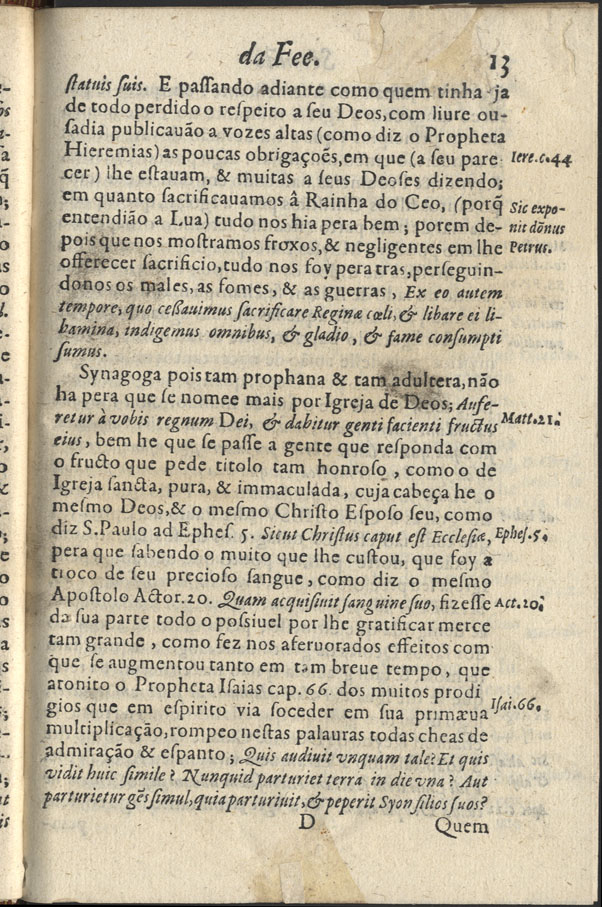 da Fee. 13
ſtatuis ſuis. E paſſando adiante como quem tinha ja
de todo perdido o reſpeito a ſeu Deos, com liure ou-
ſadia publicauão a vozes altas (como diz o Propheta
Hieremias) as poucas obrigaçoẽs, em que (a ſeu pare Iere.c.44
cer) lhe eſtauam, & muitas a ſeus Deoſes dizendo;
em quanto ſacrificauamos â Rainha do Ceo, (porq̃ Sic expo-
entendião a Lua) tudo nos hia pera bem; porem de- nit dõnus
pois que nos moſtramos froxos, & negligentes em lhe Petrus.
offerecer ſacrificio, tudo nos foy pera tras, perſeguin-
donos os males, as fomes, & as guerras, Ex eo autem
tempore, quo ceßauimus ſacrificare Reginæ cœli, & libare ei li-
bamina, indigemus omnibus, & gladio, & fame conſumpti
ſumus.
Synagoga pois tam prophana & tam adultera, não
ha pera que ſe nomee mais por Igreja de Deos; Aufe-
retur à vobis regnum Dei, & dabitur genti facienti fructus Matt.21.
eius, bem he que ſe paſſe a gente que reſponda com
o fructo que pede titolo tam honroſo, como o de
Igreja ſancta, pura, & immaculada, cuja cabeça he o
meſmo Deos, & o meſmo Chriſto Eſpoſo ſeu, como
diz S. Paulo ad Epheſ. 5. Sicut Chriſtus caput eſt Eccleſiæ, Epheſ.5.
pera que ſabendo o muito que lhe cuſtou, que foy a
troco de ſeu precioſo sangue, como diz o meſmo
Apoſtolo Actor. 20. Quam acquiſiuit ſanguine ſuo, fizeſſe Act.20.
da ſua parte todo o poſſiuel por lhe gratificar merce
tam grande, como fez nos aferuorados effeitos com
que ſe augmentou tanto em tam breue tempo, que
atonito o Propheta Iſaias cap. 66. dos muitos prodi
gios que em eſpirito via ſoceder em ſua primæua Iſai.66.
multiplicação, rompeo neſtas palauras todas cheas de
admiração & eſpanto; Quis audiuit vnquam tale? Et quis
vidit huic ſimile? Nunquid parturiet terra in die vna? Aut
parturietur gẽs ſimul, quia parturiuit, & peperit Syon filios ſuos?
D Quem